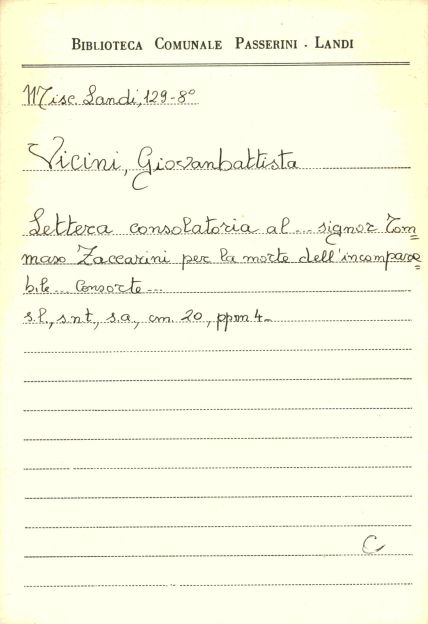 BIBLIOTECA COMUNALE PASSERINI - LANDI
Misc. Landi, 129-8°
Vicini, Giovanbattista
Lettera consolatoria al ... signor Tom=
maso Zaccarini per la morte dell'incompara=
bile ... Consorte ...
s.l., s.n.t., s.a., cm. 20, pp.nn 4.
C